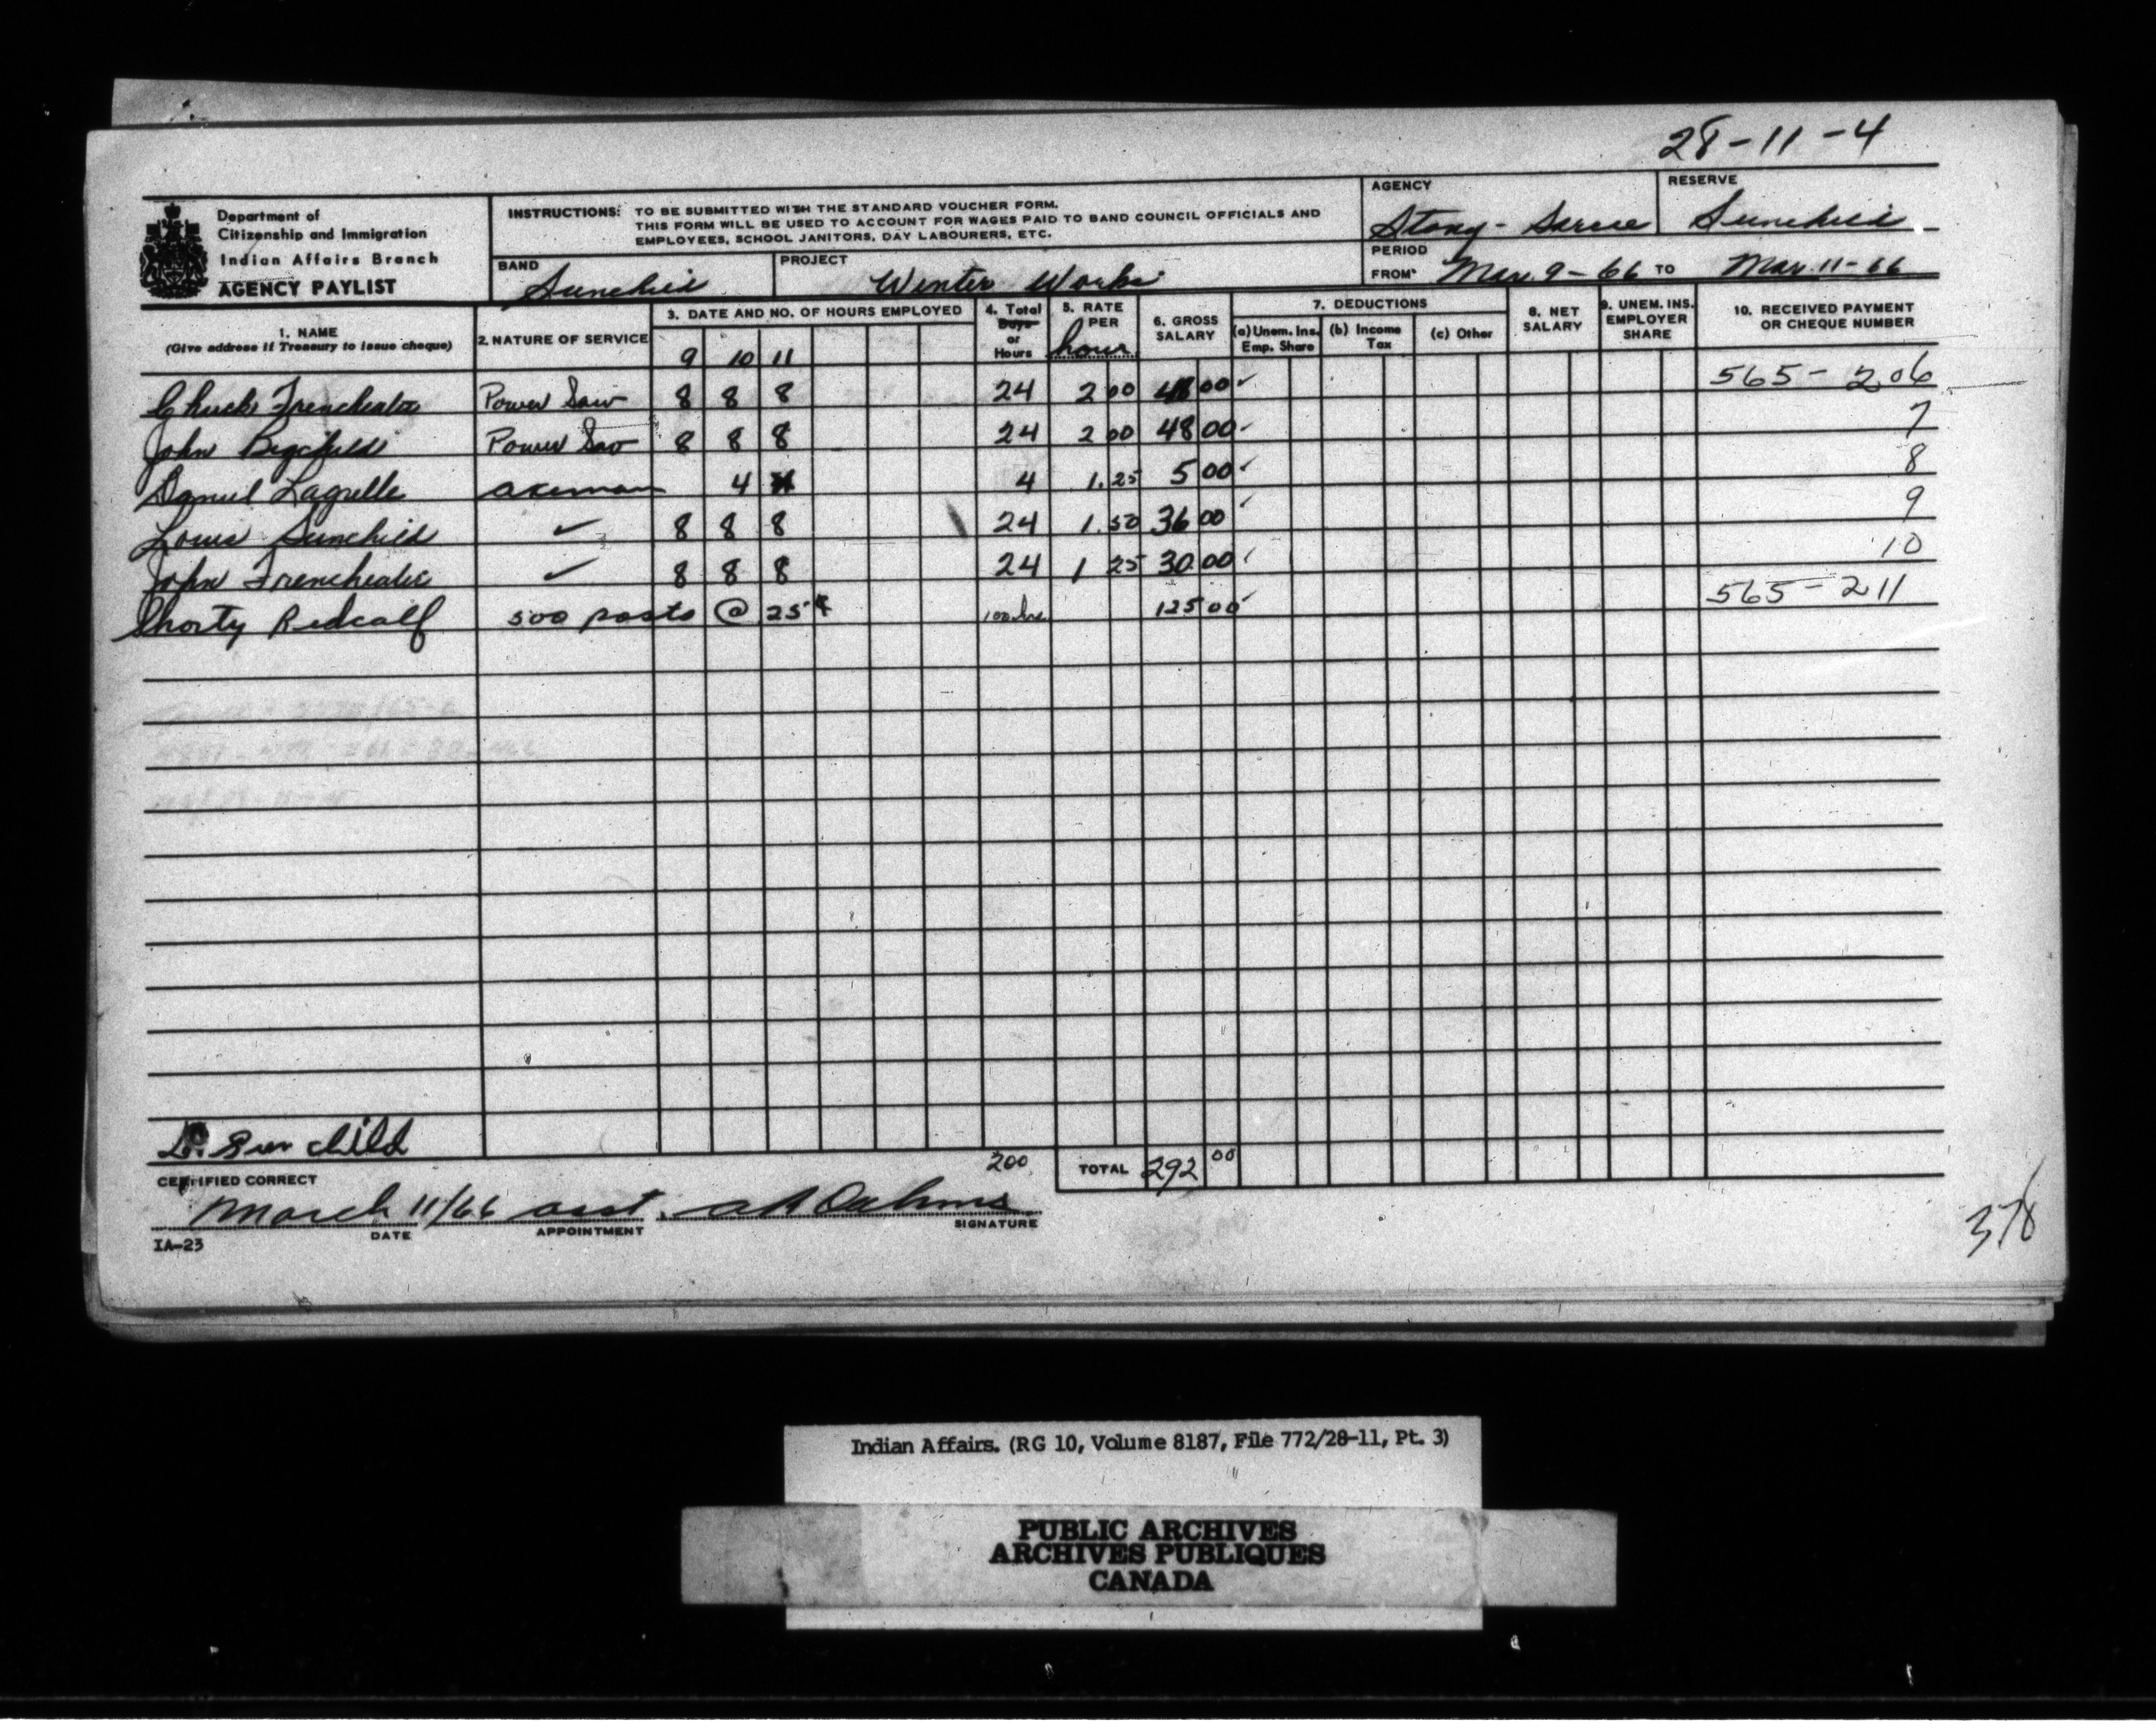 28-11-4
Department of
Citizenship and Immigration
Indian Affairs Branch
AGENCY PAYLIST
INSTRUCTIONS: TO BE SUBMITTED WITH THE STANDARD VOUCHER FORM.
THIS FORM WILL BE USED TO ACCOUNT FOR WAGES PAID TO BAND COUNCIL OFFICIALS AND
EMPLOYEES, SCHOOL JANITORS, DAY LABOURERS, ETC.
AGENCY Stony-Sarcee
RESERVE Sunchild
BAND Sunchild
PROJECT Winter Works
PERIOD
FROM Mar. 9-66 TO Mar. 11-66
1. NAME
(Give address if Treasury to issue cheque)
2. NATURE OF SERVICE
3. DATE AND NO. OF HOURS EMPLOYED
9 10 11
4. Total Days or Hours
5. RATE PER hour
6. GROSS SALARY
7. DEDUCTIONS
(a) Unem. Ins. Emp. Share
(b) Income Tax
(c) Other
8. NET SALARY
9. UNEM. INS. EMPLOYER SHARE
10. RECEIVED PAYMENT OR CHEQUE NUMBER
Chuck Frencheater Power Saw 8 8 8 24 2 00 48 00 ✓ 565-206
John Bigchild Power Saw 8 8 8 24 2 00 48 00 ✓ 7
Daniel Lagrelle axeman 4 4 1.25 5 00 ✓ 8
Louis Sunchild ✓ 8 8 8 24 1.50 36 00 ✓ 9
John Frencheater ✓ 8 8 8 24 1 25 30 00 ✓ 10
Shorty Redcalf 500 posts @ 25¢ 100 hrs 125 00 ✓ 565-211
L. Sun child
200 TOTAL 292 00
CERTIFIED CORRECT
March 11/66 asst.
DATE APPOINTMENT SIGNATURE
IA-23
378
Indian Affairs. (RG 10, Volume 8187, File 772/28-11, Pt. 3)
PUBLIC ARCHIVES
ARCHIVES PUBLIQUES
CANADA